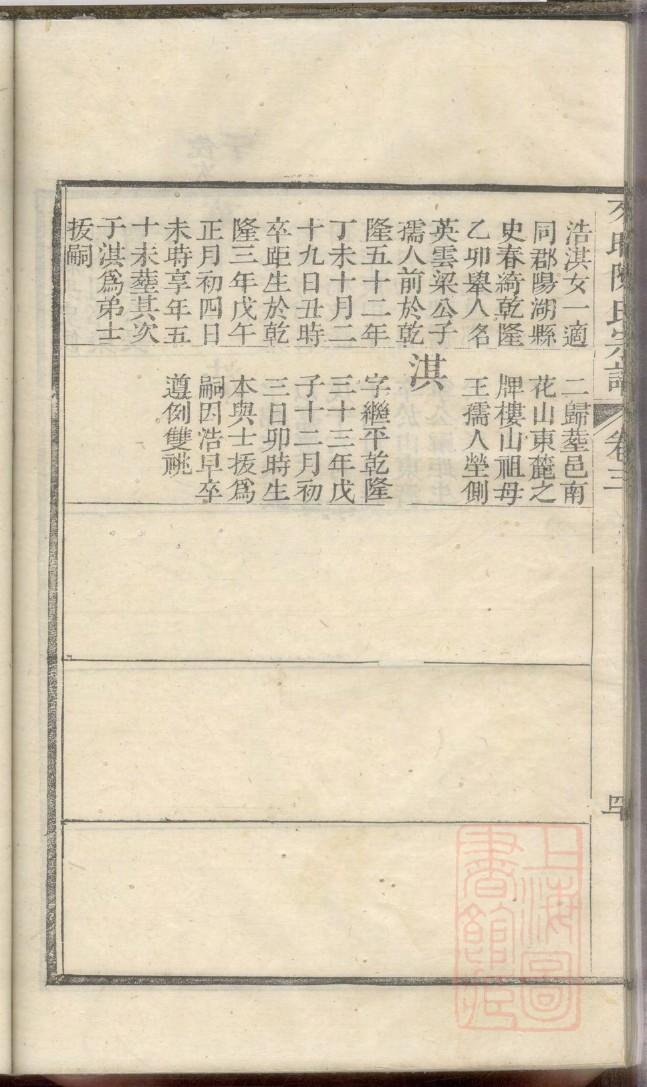 浩淇女一適
同郡陽湖縣
史春綺乾隆
乙卯舉人名
英雲梁公子
孺人前於乾
隆五十二年
丁未十月二
十九日丑時
卒距生於乾
隆三年戊午
正月初四日
未時享年五
十未塟其次
子淇為弟士
拔嗣
二歸塟邑南
花山東麓之
牌樓山祖母
王孺人塋側
淇
字繼平乾隆
三十三年戊
子十二月初
三日卯時生
本與士拔為
嗣因浩早卒
遵例雙祧
陳氏宗譜
卷三
上海圖書館藏